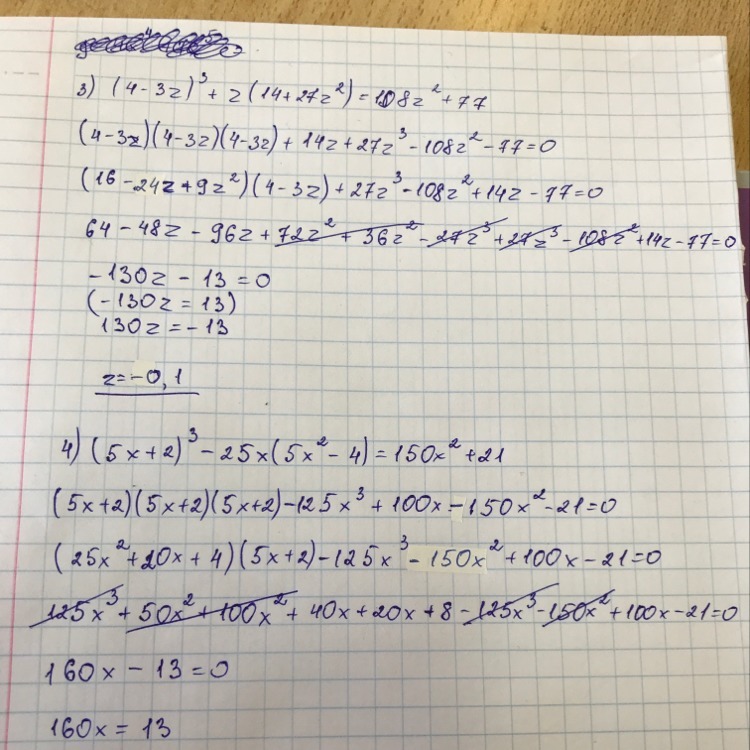 3) (4-3z)³ + z(14+27z²) = 108z² + 77
(4-3z)(4-3z)(4-3z) + 14z + 27z³ - 108z² - 77 = 0
(16 - 24z + 9z²)(4-3z) + 27z³ - 108z² + 14z - 77 = 0
64 - 48z - 96z + 72z² + 36z² - 27z³ + 27z³ - 108z² + 14z - 77 = 0
-130z - 13 = 0
(-130z = 13)
130z = -13
z = -0,1
4) (5x+2)³ - 25x(5x² - 4) = 150x² + 21
(5x+2)(5x+2)(5x+2) - 125x³ + 100x - 150x² - 21 = 0
(25x² + 20x + 4)(5x+2) - 125x³ - 150x² + 100x - 21 = 0
125x³ + 50x² + 100x² + 40x + 20x + 8 - 125x³ - 150x² + 100x - 21 = 0
160x - 13 = 0
160x = 13